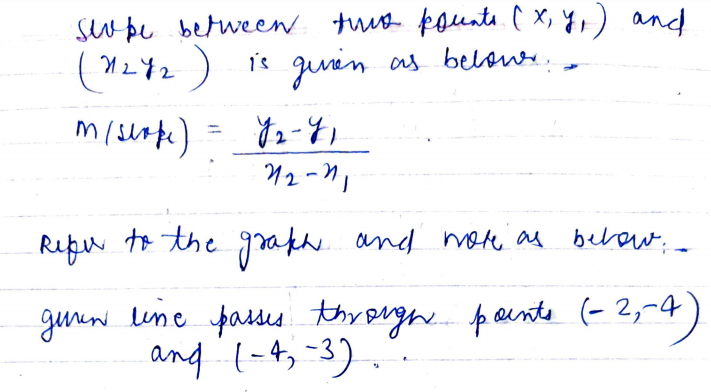 slope between two points (x, y₁) and
(x₂y₂) is given as below:-
m(slope) = y₂-y₁
x₂-x₁
Refer to the graph and note as below:-
given line passes through points (-2,-4)
and (-4,-3).